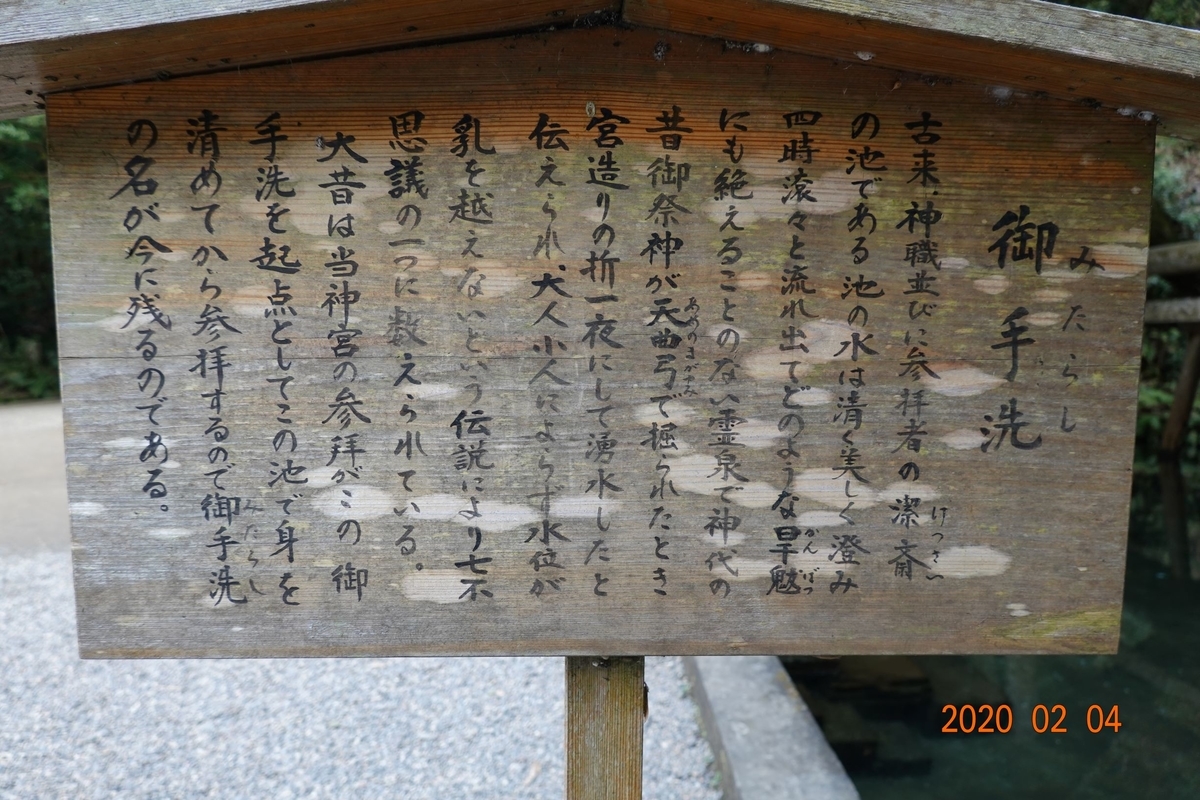 御手洗
みたらし
古来、神職並びに参拝者の潔斎
けっさい
の池である池の水は清く美しく澄み
四時滾々と流れ出てどのような旱魃
かんばつ
にも絶えることのない霊泉で神代の
昔御祭神が天曲弓で掘られたとき
あめのまがゆみ
宮造りの折一夜にして湧水したと
伝えられ、大人小人によらず水位が
乳を越えないという伝説により七不
思議の一つに数えられている。
大昔は当神宮の参拝がこの御
手洗を起点としてこの池で身を
清めてから参拝するので御手洗
みたらし
の名が今に残るのである。
2020 02 04